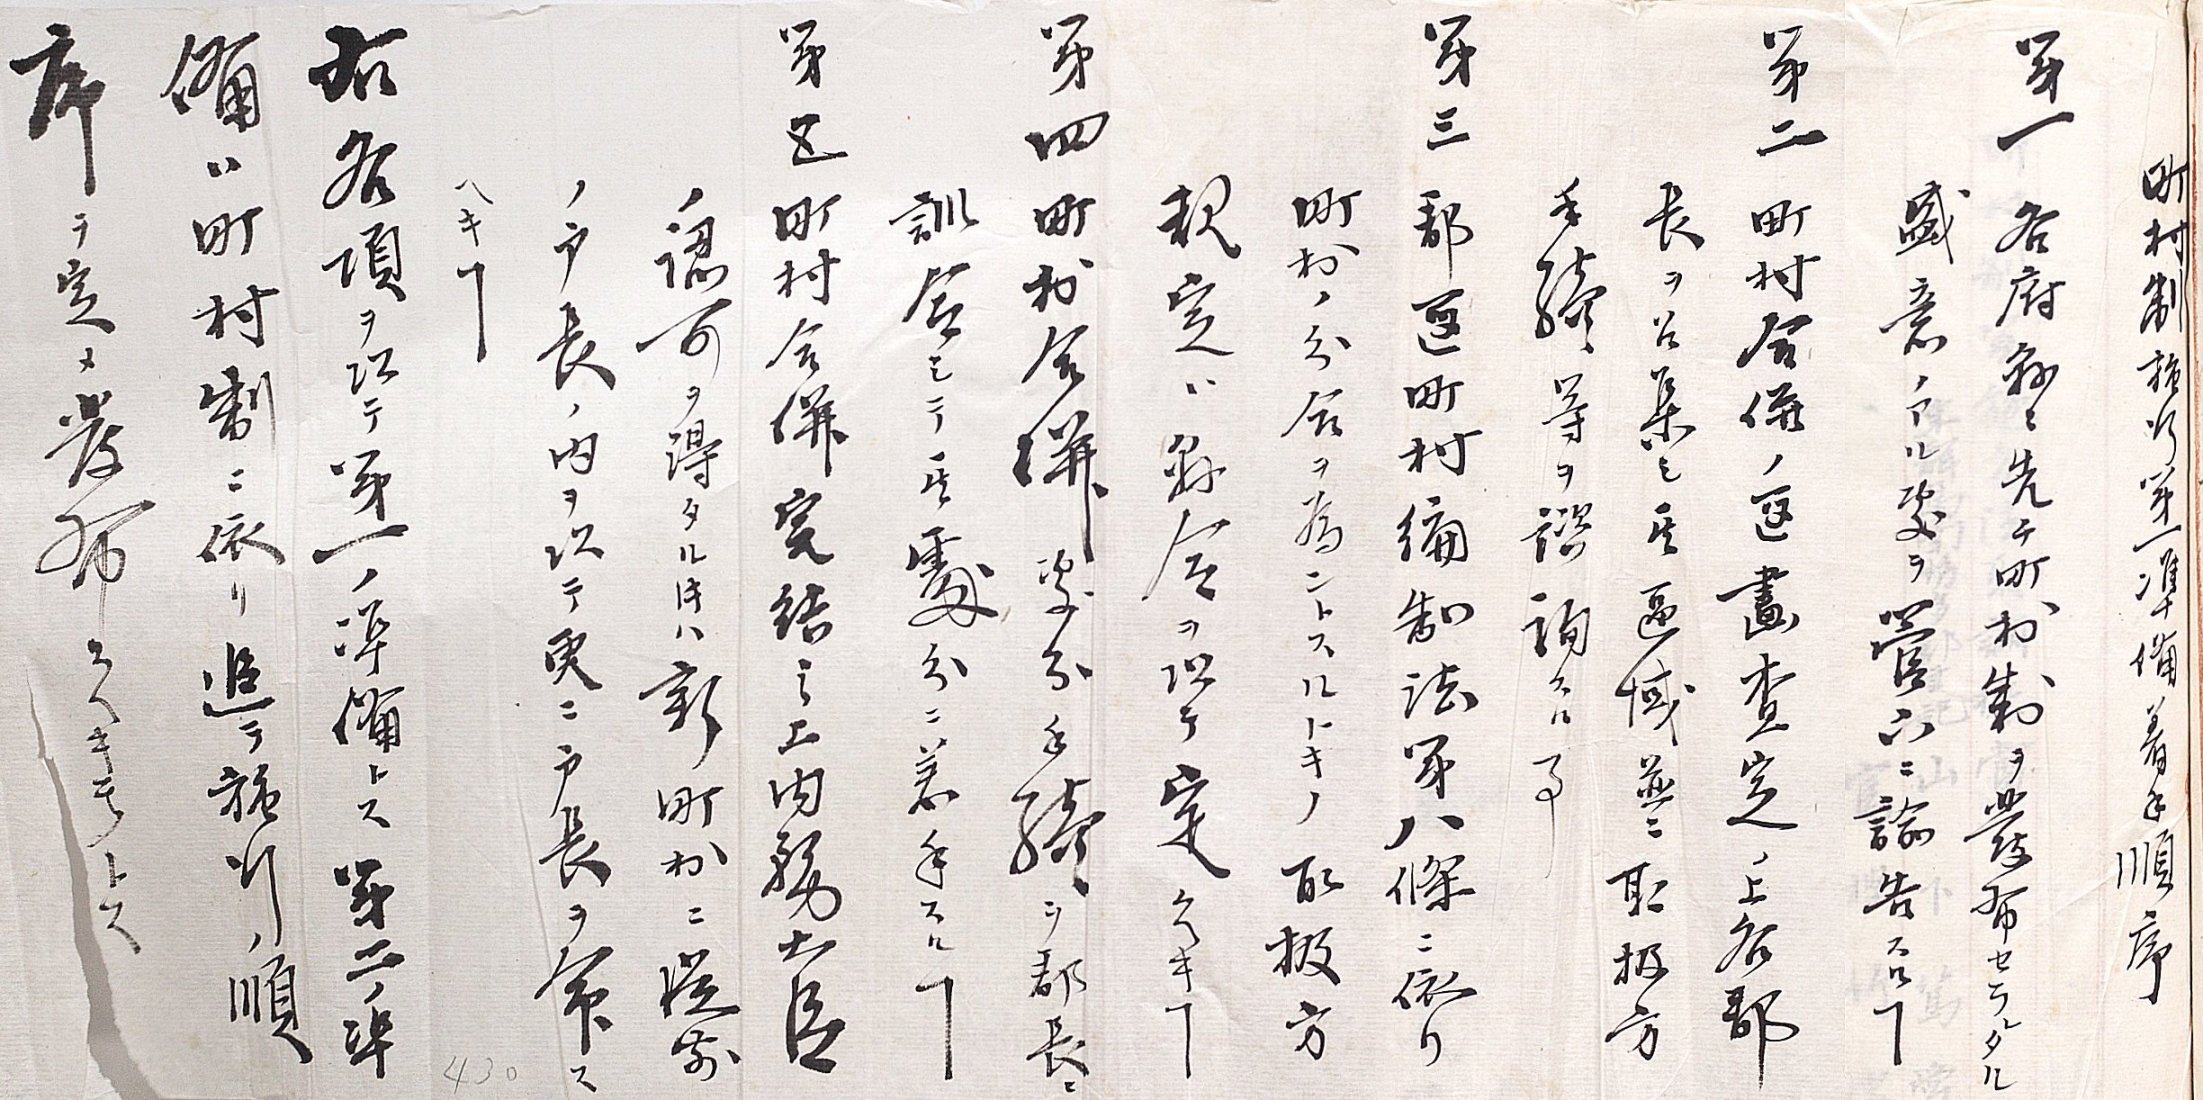 町村制施行第一準備着手順序
第一 各府縣ニ先チ町村制ヲ發布セラレタル
盛意ノアル處ヲ管下ニ諭告スルヿ
第二 町村合併ノ區畫査定ノ上各郡
長ヲ召集シ其區域並ニ取扱方
手續等ヲ諮詢スル事
第三 郡區町村編制法第八條ニ依リ
町村ノ分合ヲ為ントスルトキノ取扱方
規定ハ縣令ヲ以テ定ムヘキヿ
第四 町村合併處分手續ヲ郡長ニ
訓令シテ其處分ニ着手スルヿ
第五 町村合併完結之上内務大臣
ノ認可ヲ得タル時ハ新町村ニ從前
ノ戸長ノ内ヲ以テ更ニ戸長ヲ命ス
ヘキヿ
右各項ヲ以テ第一ノ準備トス第二ノ準
備ハ町村制ニ依リ追テ施行ノ順
序ヲ定メ發布スヘキモノトス
430